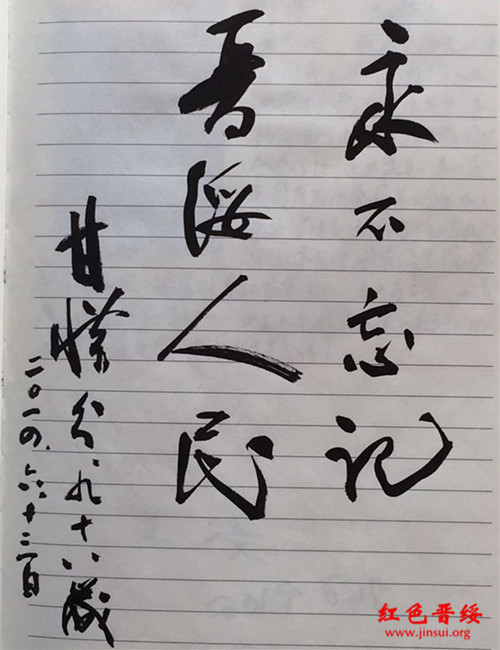 永不忘记
晋绥人民
甘惜分、九十八岁
二〇一四.六十二日
红色晋绥
www.jinsui.org